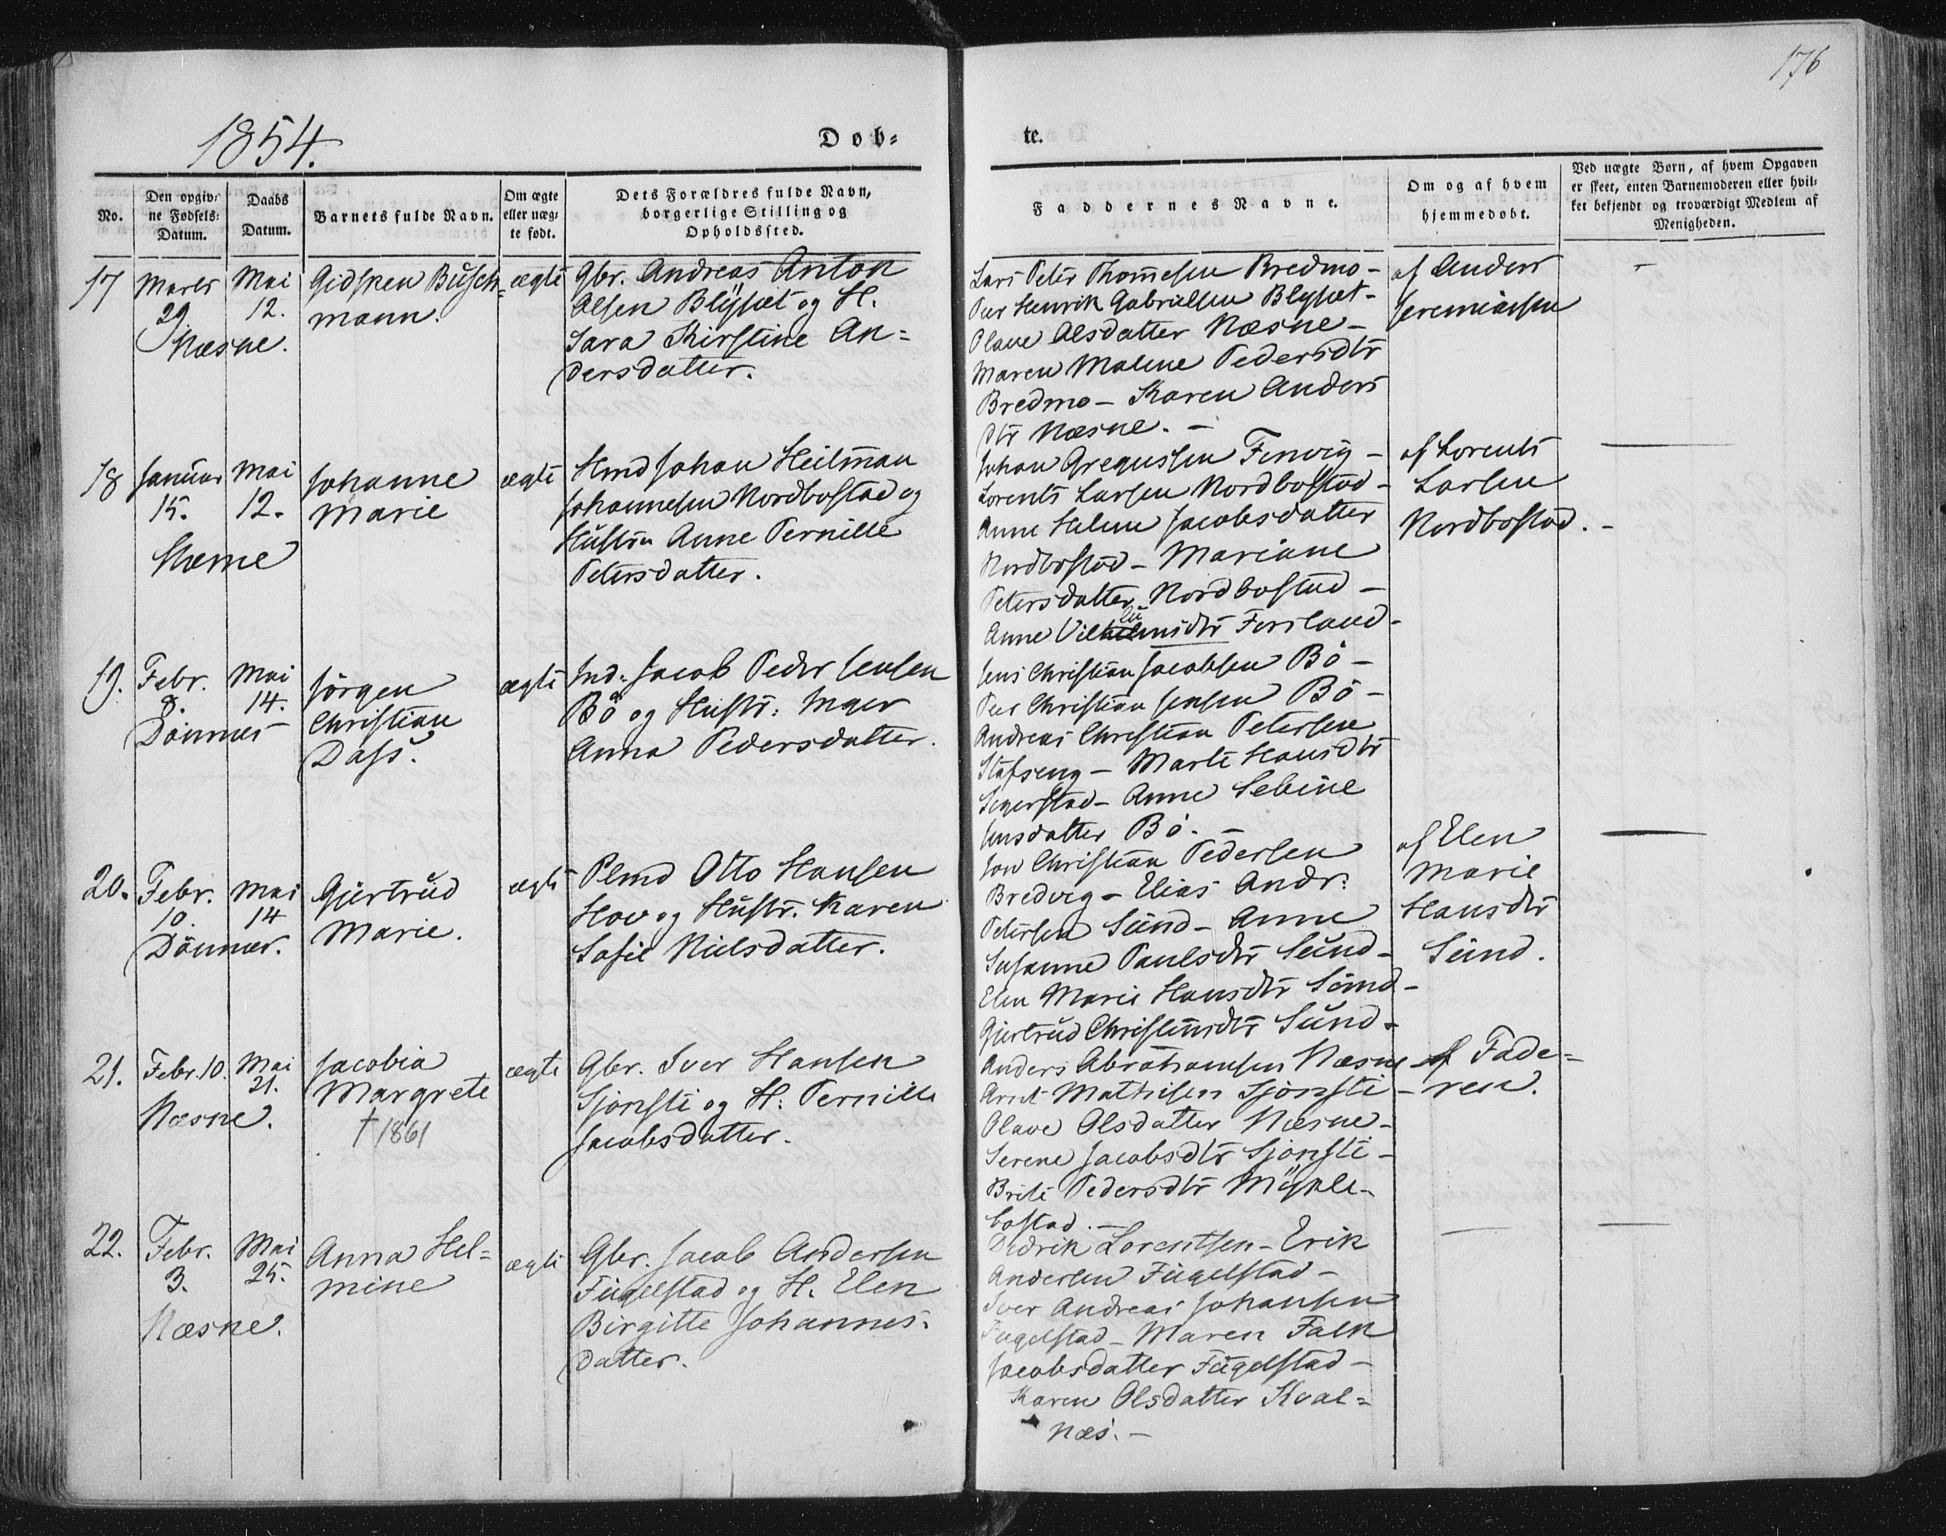 176
1854.
Døb=
te.
No.
Den opgiv=
ne Fødsels=
Datum.
Daabs
Datum.
Barnets fulde Navn.
Om ægte
eller uæg=
te født.
Dets Forældres fulde Navn,
borgerlige Stilling og
Opholdssted.
Faddernes Navne.
Om og af hvem
hjemmedøbt.
Ved uægte Børn, af hvem Opgaven
er skeet, enten Barnemoderen eller hvil=
ket bekjendt og troværdigt Medlem af
Menigheden.
17
Marts
29
Næsne.
Mai
12.
Gidsken Busch=
mann.
ægte
Gbr. Andreas Anton
Olsen Blysæt og H.
Sara Kirstine An=
dersdatter.
Lars Peter Thomesen Bredmo -
Peer Henrik Gabrielsen Blysæt -
Olave Olsdatter Næsne -
Maren Malene Pedersdtr
Bredmo - Karen Anders
dtr Næsne. -
af Anders
Jeremiassen
-
18
Januar
15.
Næsne
Mai
12.
Johanne
Marie
ægte
Hmd Johan Heitman
Johannesen Nordbostad og
Hustru Anne Pernille
Petersdatter.
Johan Gregussen Finvig -
Lorents Larsen Nordbostad -
Anne Helene Jacobsdatter
Nordbostad - Mariane
Petersdatter Nordbostad -
Anne Vilhelmsdtr Forsland -
af Lorents
Larsen
Nordbostad. -
19.
Febr.
8.
Dönnes
Mai
14.
Jörgen
Christian
Dass.
ægte
Ind. Jacob Peder Jensen
Bö og Hustr: Inger
Anna Pedersdatter.
Jens Christian Jacobsen Bö -
Peer Christian Jensen Bö -
Andreas Christian Petersen
Stafseng - Marte Hansdtr
Segerstad - Anne Sebine
Jensdatter Bö. -
20.
Febr.
10.
Dönnes.
Mai
14
Gjertrud
Marie.
ægte
Plmd Otto Hansen
Hov og Hustr. Karen
Sofie Nielsdatter.
Jon Christian Pedersen
Bredvig - Elias Andr:
Petersen Sund - Anne
Susanne Paulsdtr Sund -
Elen Marie Hansdtr Sund -
Gjertrud Christensdtr Sund -
af Elen
Marie
Hansdtr
Sund.
21.
Febr. 10.
Næsne.
Mai
21.
Jacobia
Margrete
† 1861
ægte
Gbr. Iver Hansen
Sjonsti og H: Pernille
Jacobsdatter.
Anders Abrahamsen Næsne -
Arnt Mathisen Sjonsti -
Olave Olsdatter Næsne -
Serene Jacobsdtr Sjonsti -
Brite Pedersdtr Mykle-
bostad. -
af Fade=
ren.
22.
Febr.
3.
Næsne.
Mai
25.
Anna Hel=
mine
ægte
Gbr. Jacob Andersen
Fugelstad og H. Elen
Birgitte Johannes=
datter.
Didrik Lorentsen - Erik
Andersen Fugelstad -
Iver Andreas Johansen
Fugelstad - Maren Falk
Jacobsdatter Fugelstad -
Karen Olsdatter Kval=
næs. -